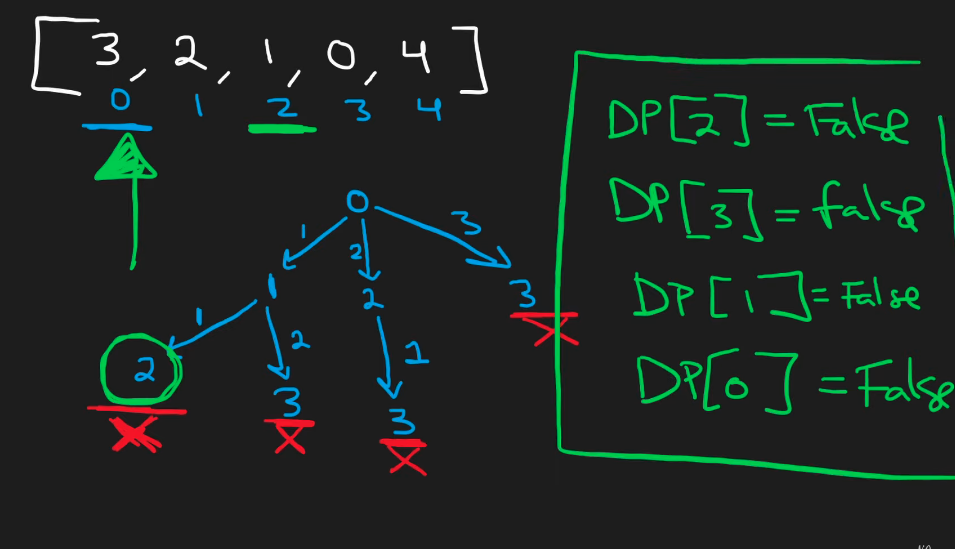 [3, 2, 1, 0, 4]
0 1 2 3 4
0
1 2 3
1 2 3
1 2 1
2 3 3
DP[2] = False
DP[3] = false
DP[1] = False
DP[0] = False